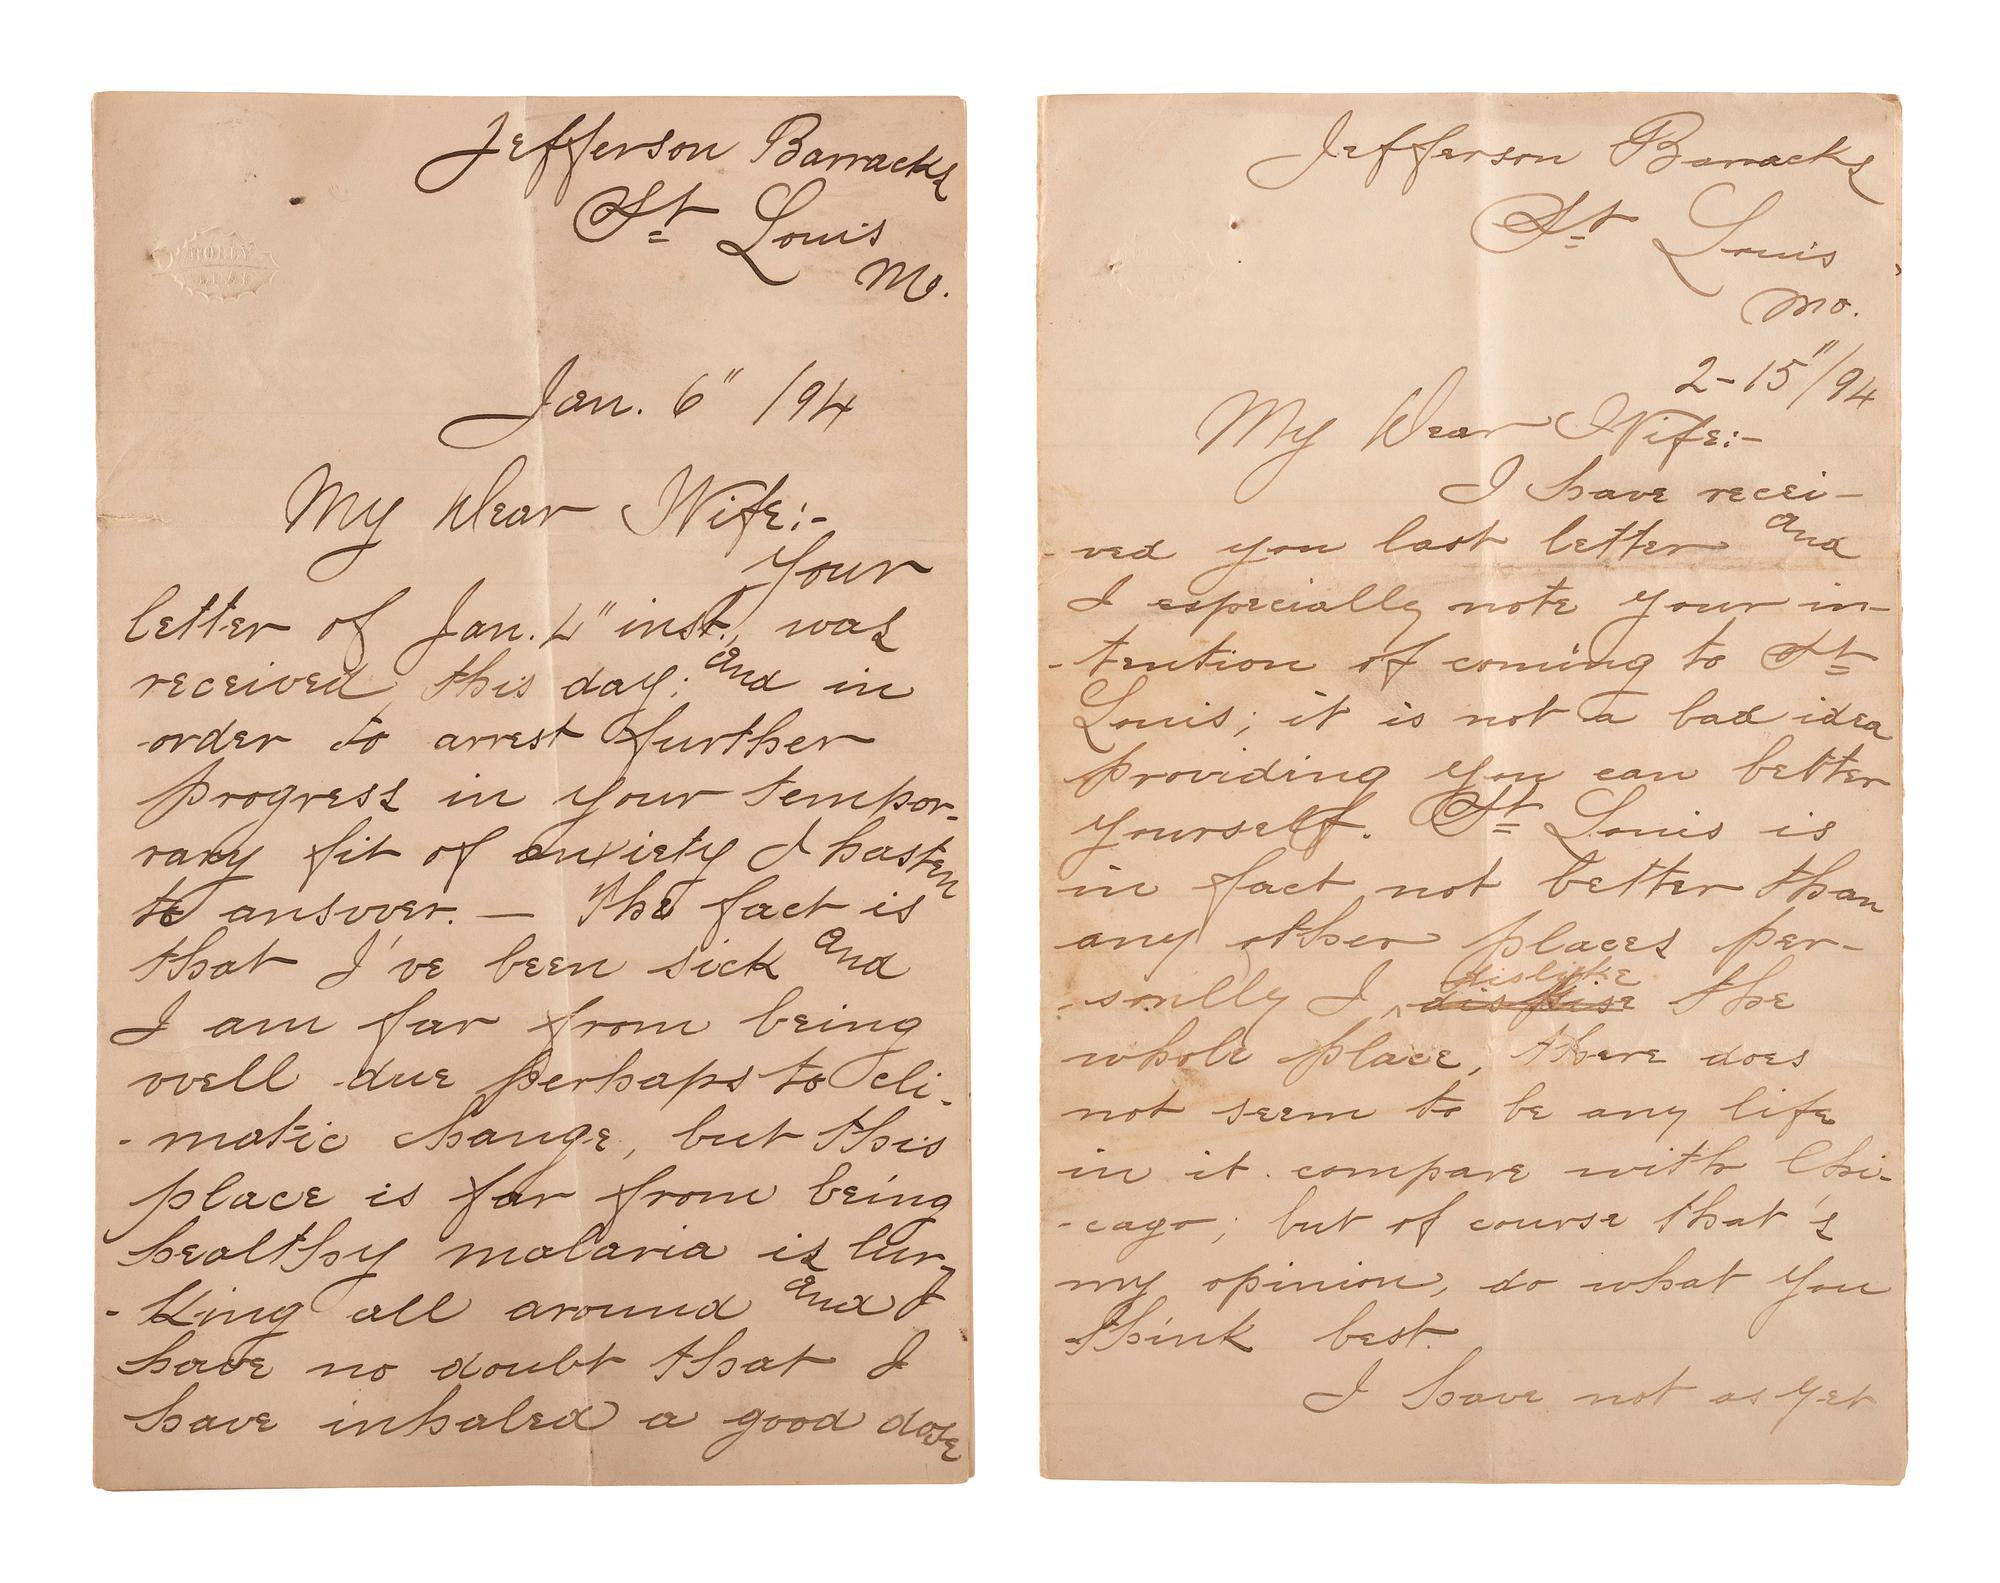 Jefferson Barracks
St Louis
Mo.
Jan. 6" /94
My Dear Wife:-
Your
letter of Jan. 4" inst., was
received this day; and in
order to arrest further
progress in your tempor-
rary fit of anxiety I hasten
to answer. — The fact is
that I've been sick and
I am far from being
well due perhaps to cli-
-matic change, but this
place is far from being
healthy malaria is lur-
-king all around and I
have no doubt that I
have inhaled a good dose
Jefferson Barracks
St Louis
Mo.
2-15"/94
My Dear Wife:-
I have recei-
-ved you last letter and
I especially note your in-
-tention of coming to St
Louis; it is not a bad idea
providing you can better
yourself. St Louis is
in fact not better than
any other places per-
dislike
-sonlly I ^ despise the
whole place, there does
not seem to be any life
in it compare with Chi-
-cago; but of course that's
my opinion, do what you
think best.
I have not as yet